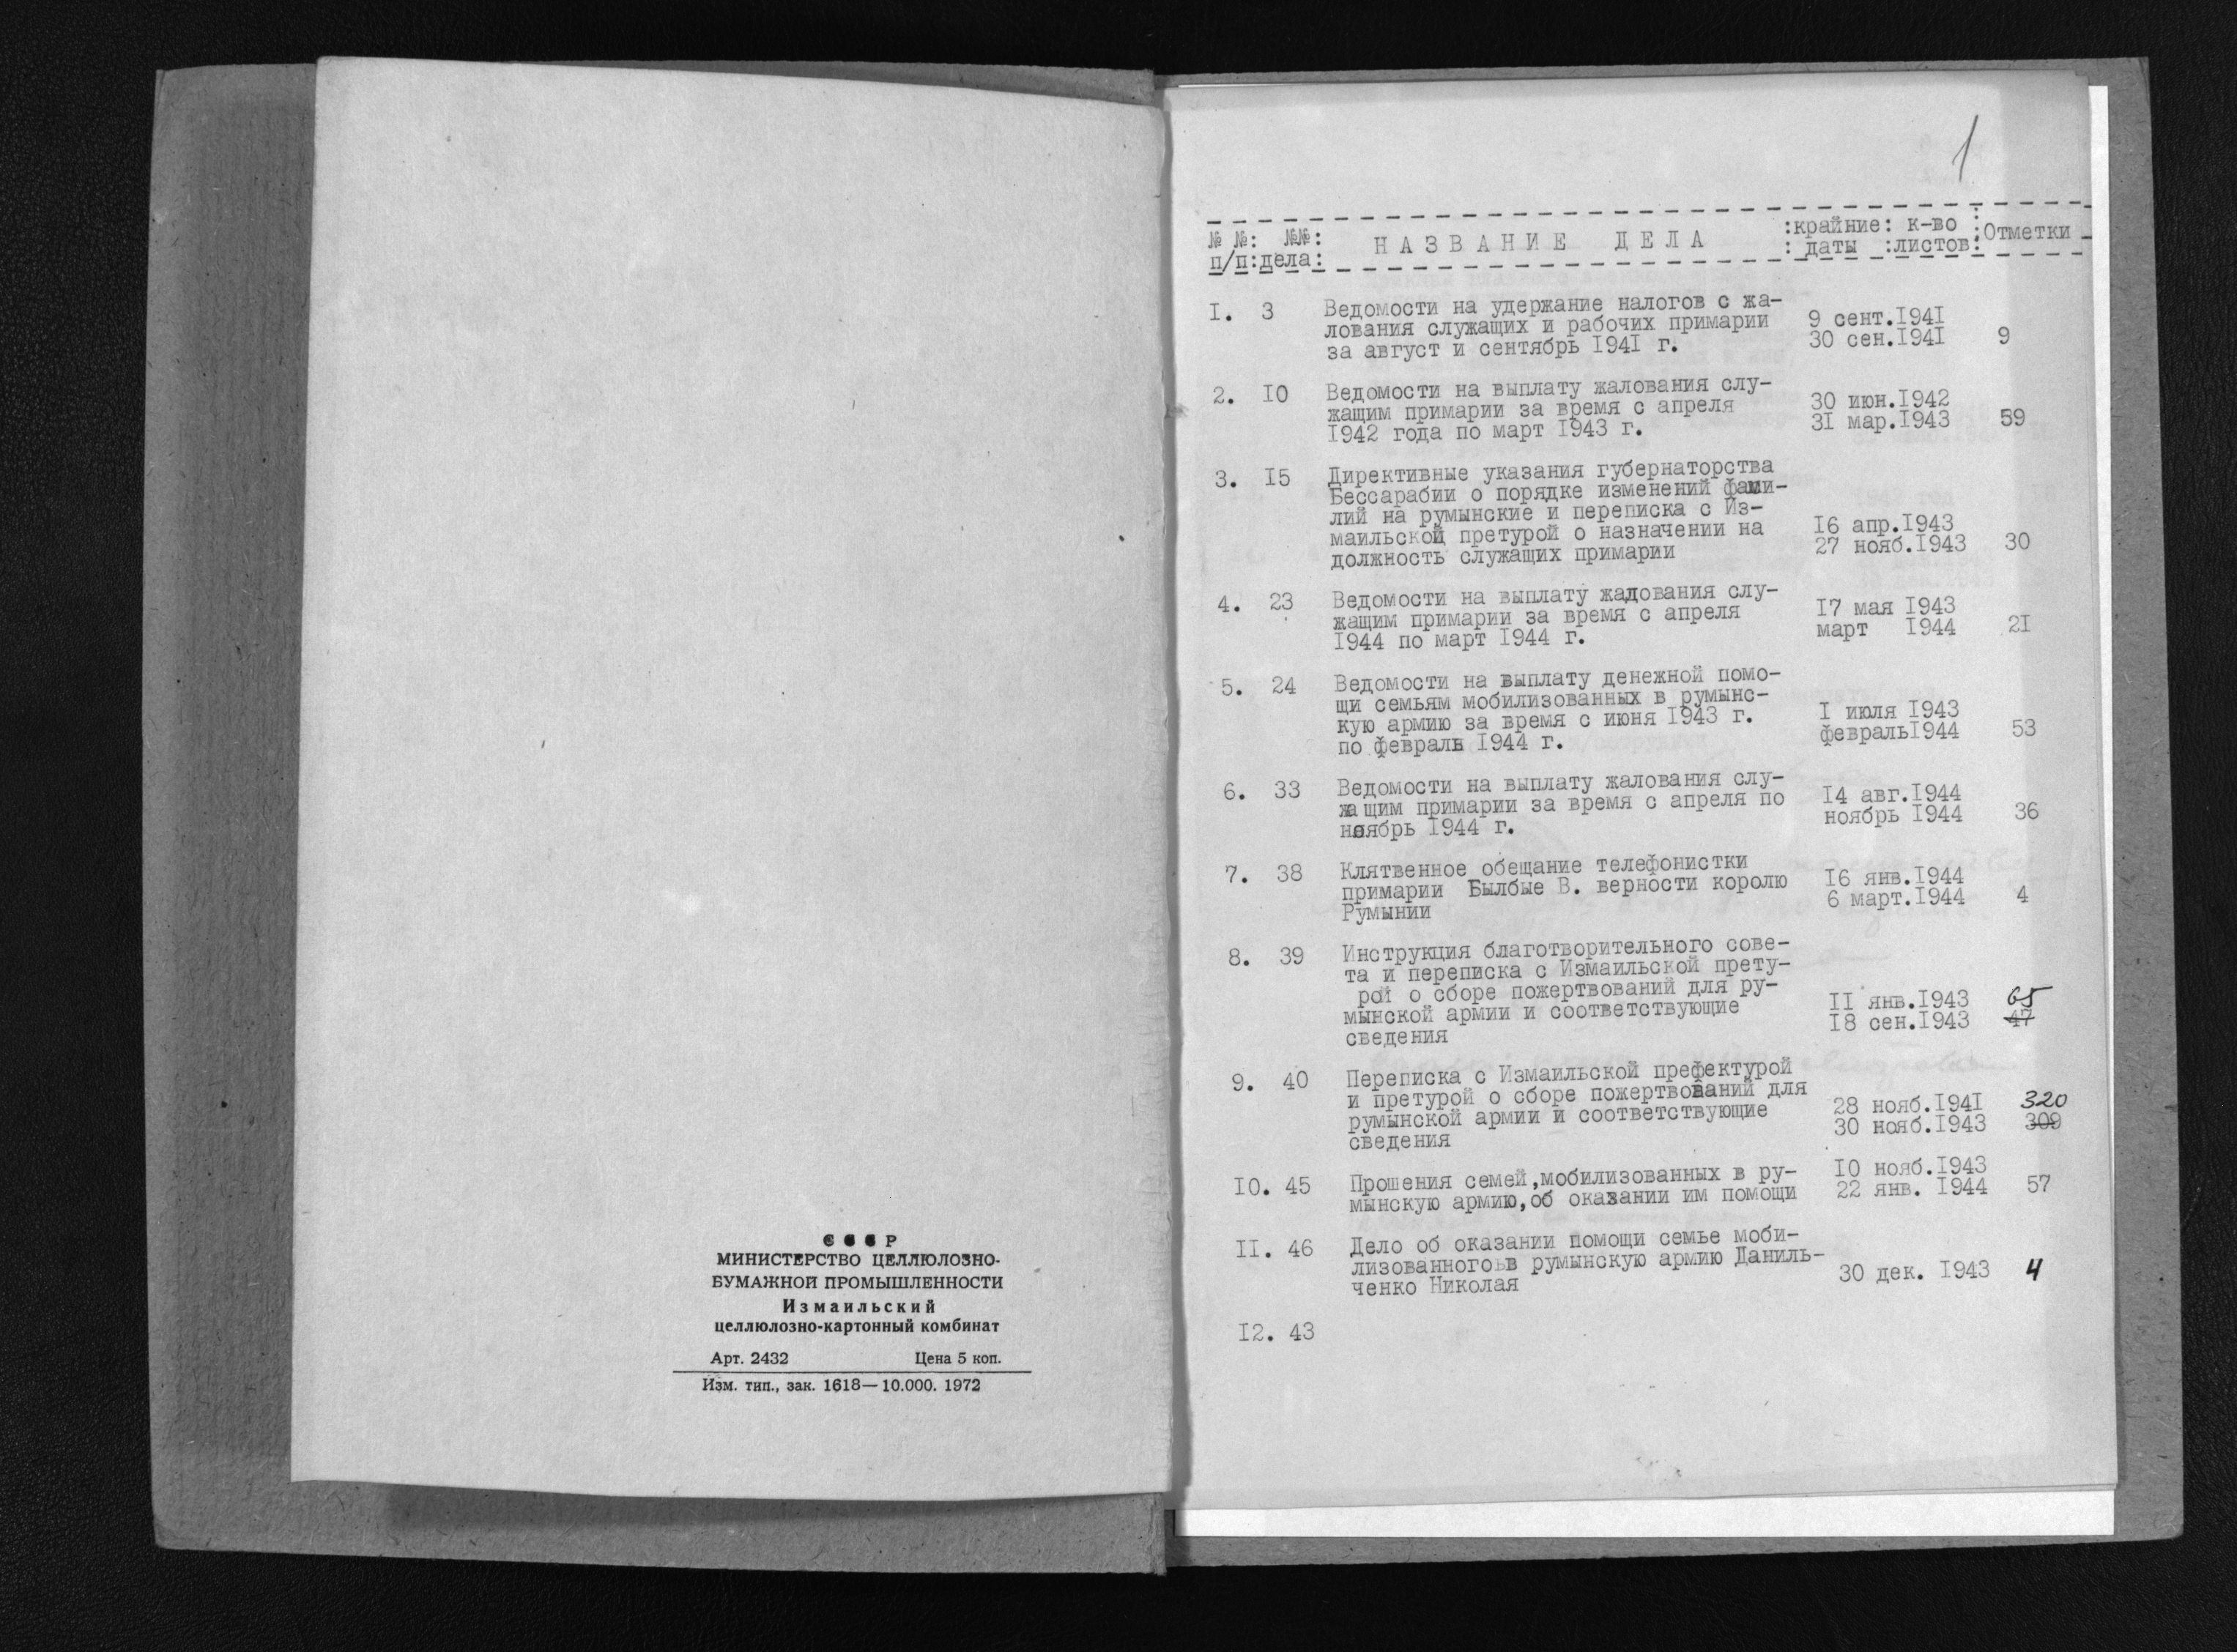 СССР
МИНИСТЕРСТВО ЦЕЛЛЮЛОЗНО-
БУМАЖНОЙ ПРОМЫШЛЕННОСТИ
Измаильский
целлюлозно-картонный комбинат
Арт. 2432 Цена 5 коп.
Изм. тип., зак. 1618—10.000. 1972
1
№ №: №№: НАЗВАНИЕ ДЕЛА :крайние: к-во :Отметки
п/п:дела: : даты :листов:
I. 3 Ведомости на удержание налогов с жа-
лования служащих и рабочих примарии 9 сент.I94I
за август и сентябрь I94I г. 30 сен.I94I 9
2. I0 Ведомости на выплату жалования слу-
жащим примарии за время с апреля 30 июн.I942
I942 года по март I943 г. 3I мар.I943 59
3. I5 Директивные указания губернаторства
Бессарабии о порядке изменений фами-
лий на румынские и переписка с Из-
маильской претурой о назначении на I6 апр.I943
должность служащих примарии 27 нояб.I943 30
4. 23 Ведомости на выплату жадования слу-
жащим примарии за время с апреля I7 мая I943
I944 по март I944 г. март I944 2I
5. 24 Ведомости на выплату денежной помо-
щи семьям мобилизованных в румынс-
кую армию за время с июня I943 г. I июля I943
по февраль I944 г. февральI944 53
6. 33 Ведомости на выплату жалования слу-
жащим примарии за время с апреля по I4 авг.I944
ноябрь I944 г. ноябрь I944 36
7. 38 Клятвенное обещание телефонистки
примарии Былбые В. верности королю I6 янв.I944
Румынии 6 март.I944 4
8. 39 Инструкция благотворительного сове-
та и переписка с Измаильской прету-
рой о сборе пожертвований для ру-
мынской армии и соответствующие II янв.I943 65
сведения I8 сен.I943 47
9. 40 Переписка с Измаильской префектурой
и претурой о сборе пожертвований для
румынской армии и соответствующие 28 нояб.I94I 320
сведения 30 нояб.I943 309
I0. 45 Прошения семей,мобилизованных в ру- I0 нояб.I943
мынскую армию,об оказании им помощи 22 янв. I944 57
II. 46 Дело об оказании помощи семье моби-
лизованногоьв румынскую армию Даниль-
ченко Николая 30 дек. I943 4
I2. 43